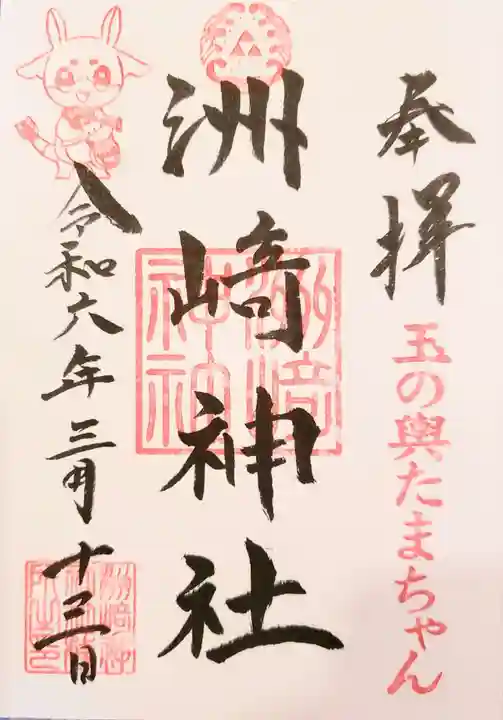 奉拝
玉の輿たまちゃん
洲崎神社
令和六年三月十三日
洲崎神社